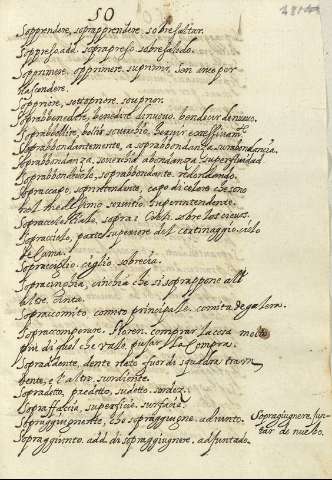 SO
Sopprendere, soprapprendere, sobresaltar.
Soppreso, ad. sopra preso, sobresaltado.
Sopprimere, opprimere, suprimir,
nascondere.
Soppriore, sottopriore, souprior.
Soprabbenedire, benedire di nuovo, bendecir di nuevo.
Soprabbollire, bollir soverchio,
Soprabbondantemente, a soprabbondanza, surabondanza,
Soprabbondanza, soverchia abondanza, superfluidad
Soprabbondevole, soprabbondante, redondando.
Sopraccapo, soprintendente, capo di coloro che sono
nel medesimo servitio, superintendente.
sopra i Cieli, sobre los cieus.
Sopracielo, parte superiore del cortinaggio, cielo
de cama.
Sopraciglio, ciglio, sobrecia.
Sopracinghia, cinghia che si soprappone all'
altre, cinta.
Sopracomito, comito principale, comite de galera.
Sopracomperare, Floren. comprar la cosa molto
più di quel che vale, pujar la compra.
Sopraddente, dente nato fuor di squadra tra un
dente, e l'altro, surdiente.
Sopradetto, predetto, sudetto,
Sopraffaccia, superficie,
Sopraggiugnente, che sopraggiugne, adjunto.
Sopraggiugnere, jun-
tar de nuebo.
Sopraggiunto, add. di sopraggiugnere, adjuntado.